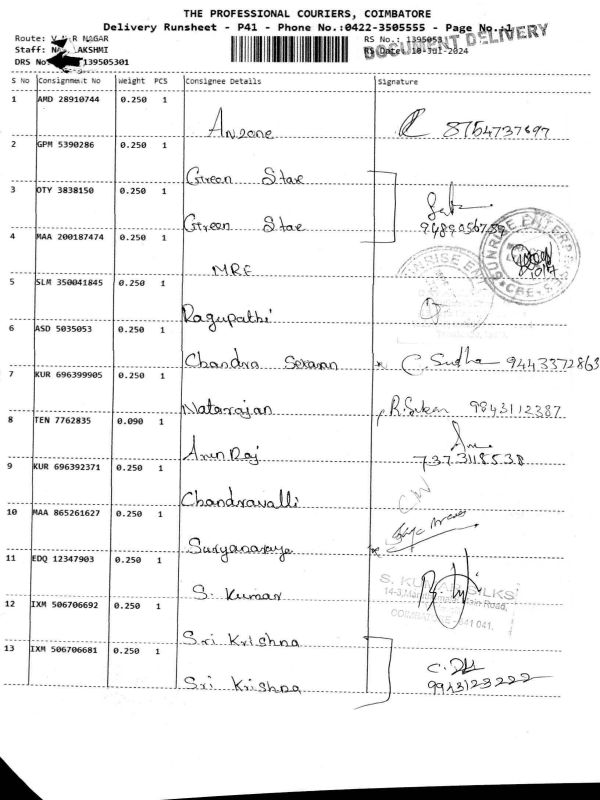 THE PROFESSIONAL COURIERS, COIMBATORE
Delivery Runsheet - P41 - Phone No.:0422-3505555 - Page No.:1
Route: NAGAR
Staff: LAKSHMI
DRS No 139505301
RS No.: 1395053
RS Date: 10-Jul-2024
DOCUMENT DELIVERY
S No Consignment No Weight PCS Consignee Details Signature
1 AMD 28910744 0.250 1 Anzone 8754737697
2 GPM 5390286 0.250 1 Green Star
3 OTY 3838150 0.250 1 Green Star
4 MAA 200187474 0.250 1 MRE
SUNRISE ENTERPRISES
CBE
5 SLM 350041845 0.250 1 Ragupathi
6 ASD 5035053 0.250 1 Chandra Sekaran C. Sudha 9443372863
7 KUR 696399905 0.250 1 Natarajan 9843112387
8 TEN 7762835 0.090 1 Arun Raj 7373118538
9 KUR 696392371 0.250 1 Chandravalli
10 MAA 865261627 0.250 1
11 EDQ 12347903 0.250 1 S. Kumar
S. KUMAR SILKS
Main Road,
COIMBATORE - 641 041.
12 IXM 506706692 0.250 1 Sri Krishna
13 IXM 506706681 0.250 1 Sri Krishna 9943123222